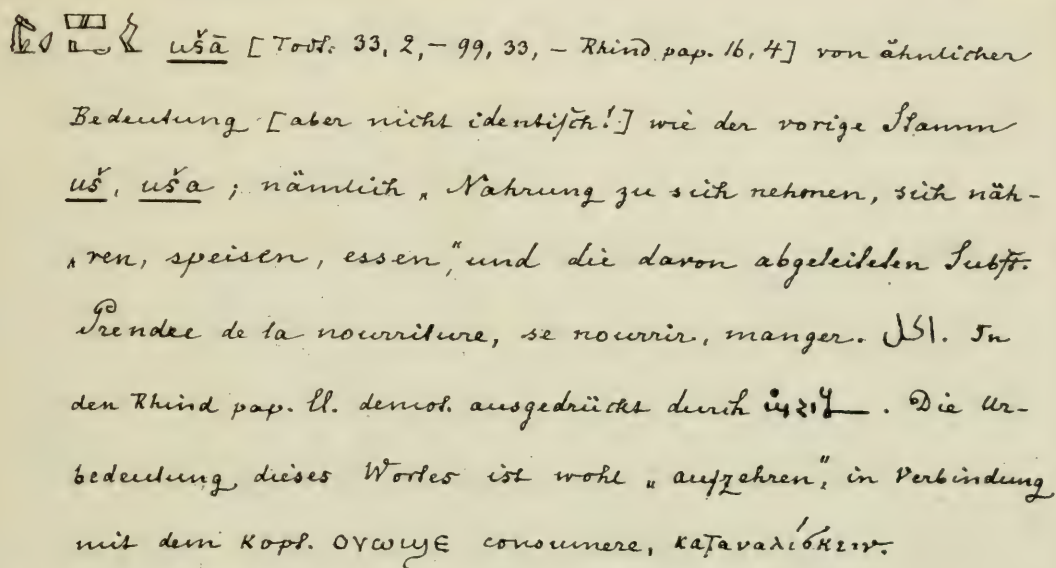 ušā [Todt. 33, 2, – 99, 33, – Rhind pap. 16, 4] von ähnlicher
Bedeutung [aber nicht identisch!] wie der vorige Stamm
uš, uša; nämlich „Nahrung zu sich nehmen, sich näh-
„ren, speisen, essen“, und die davon abgeleiteten Subst.
Prendre de la nourriture, se nourrir, manger. اكل. In
den Rhind pap. ll. demot. ausgedrückt durch . Die Ur-
bedeutung dieses Wortes ist wohl „aufzehren“, in Verbindung
mit dem Kopt. ⲟⲩⲱϣⲉ consumere, καταναλίσκειν.